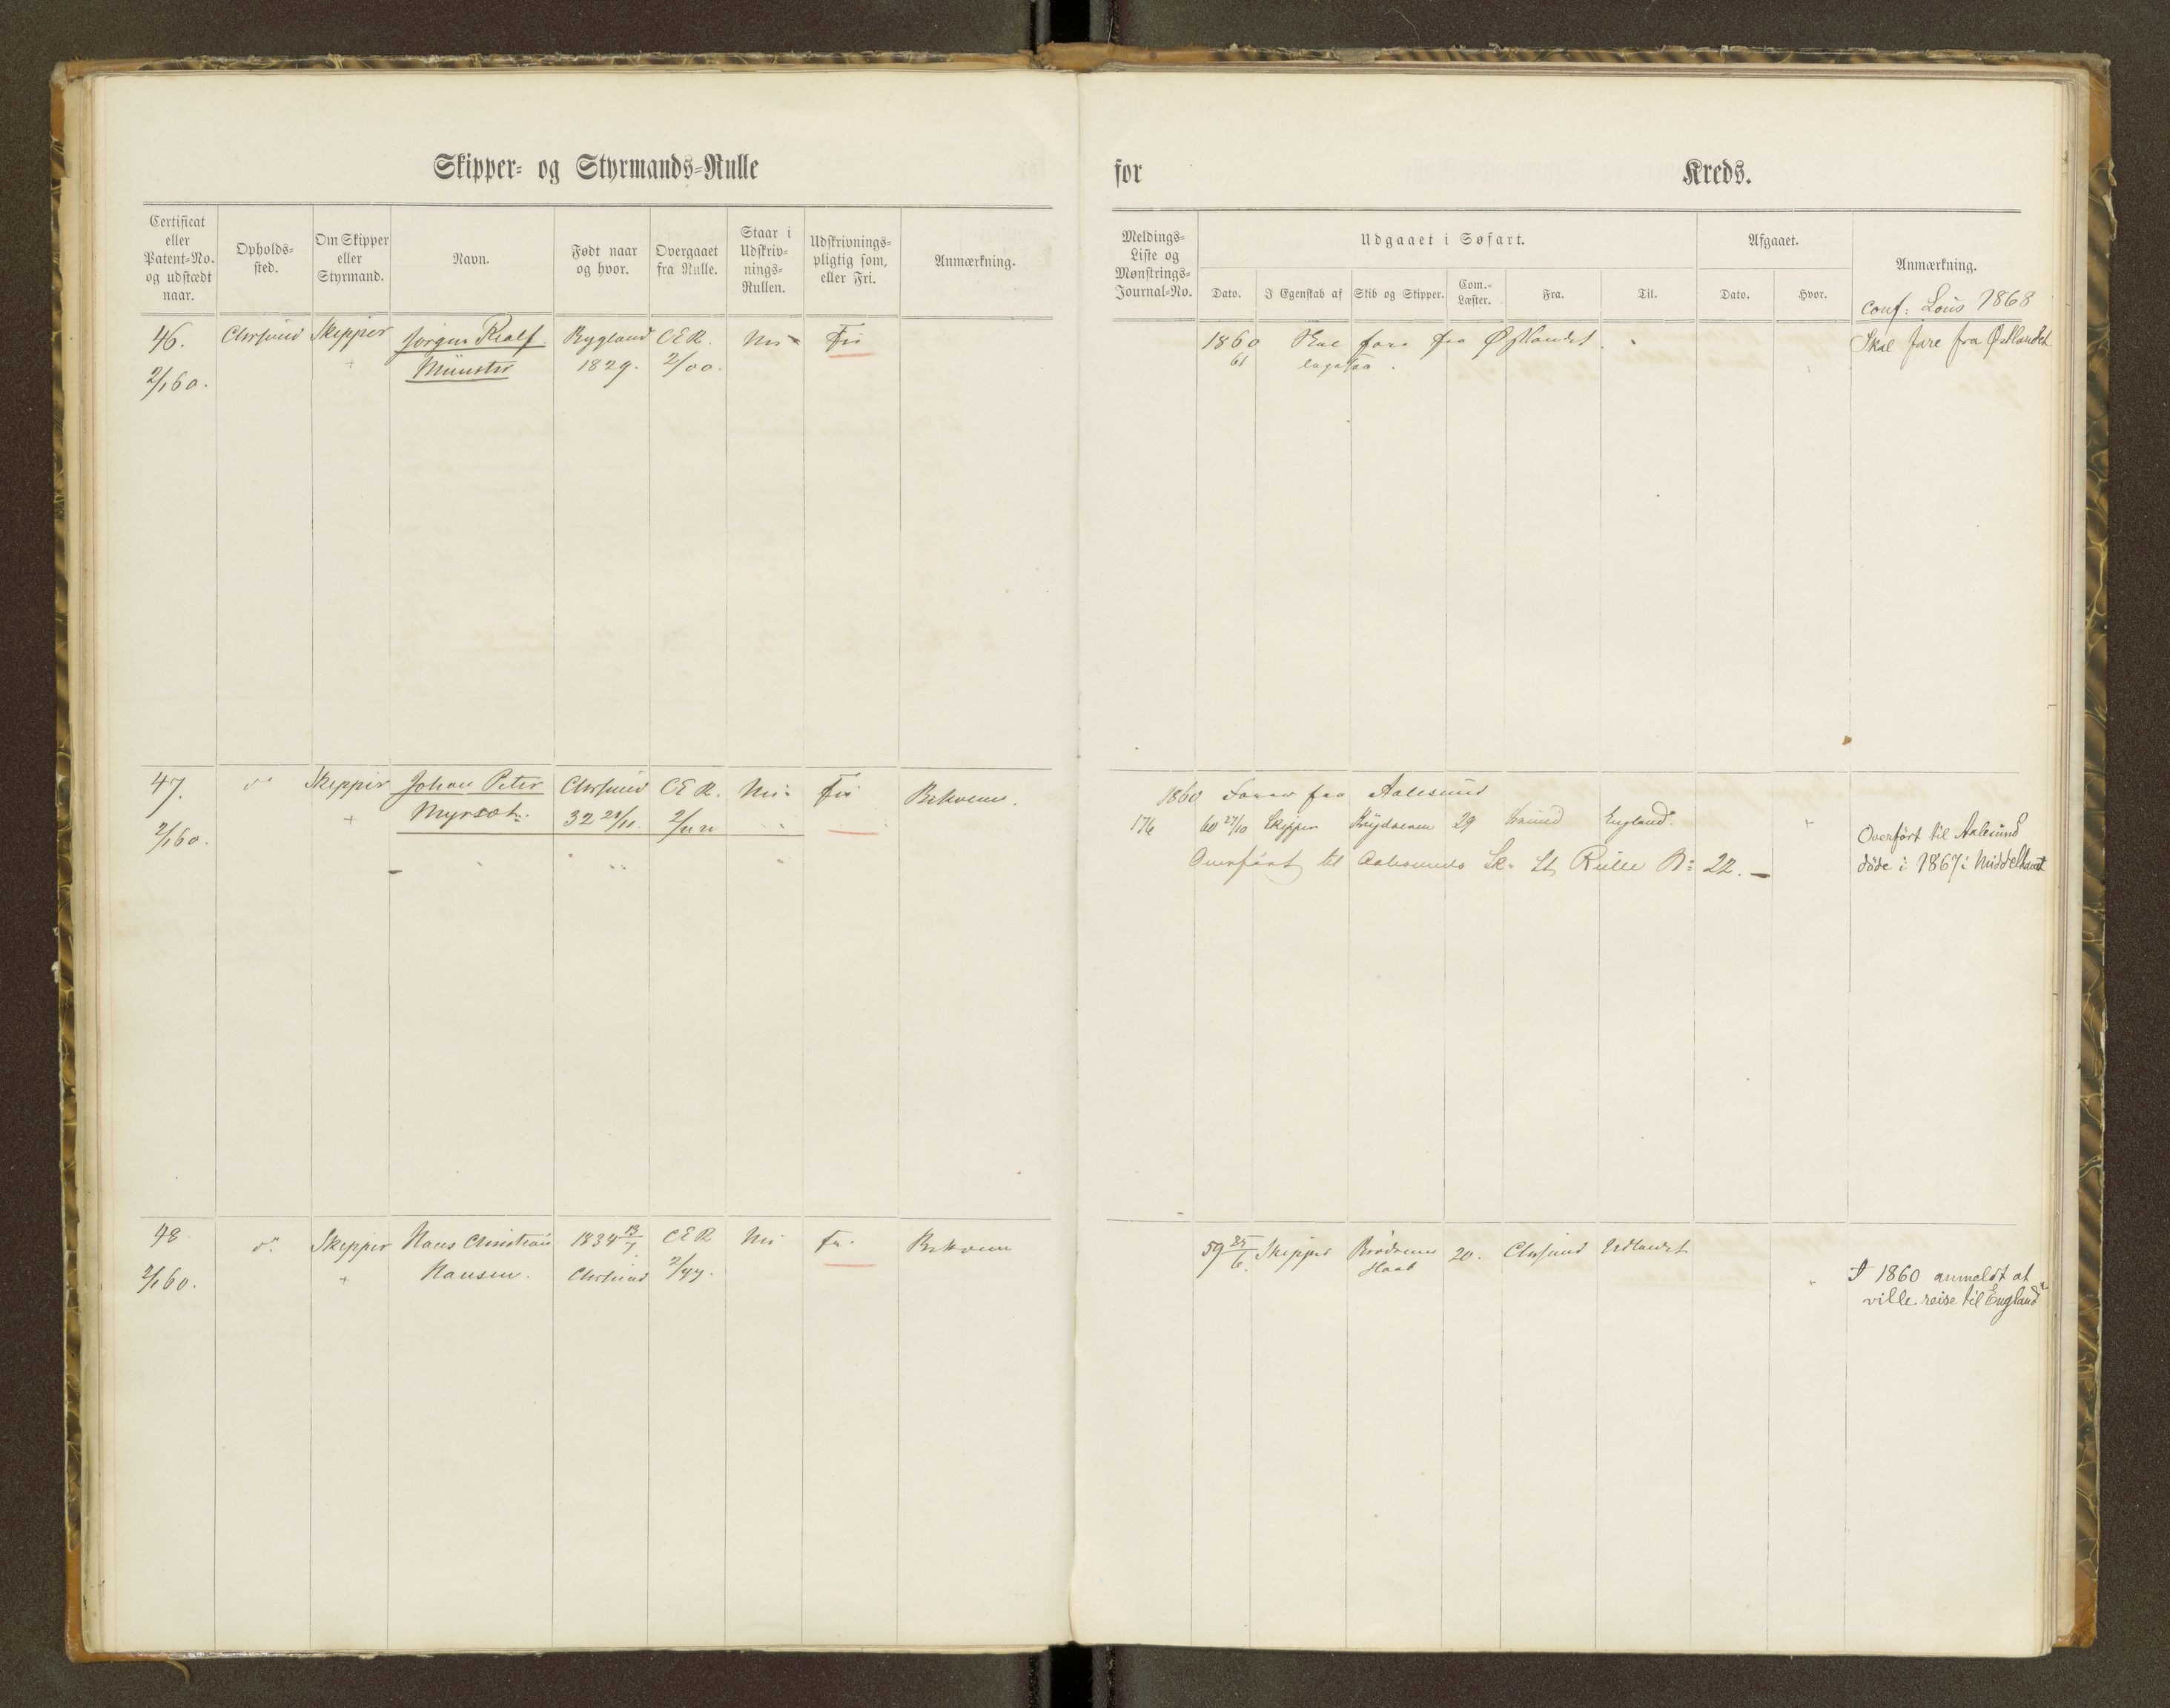 Skipper- og Styrmands-Rulle
Certificat eller Patent-No. og udstædt naar.
Opholds-sted.
Om Skipper eller Styrmand.
Navn.
Født naar og hvor.
Overgaaet fra Rulle.
Staar i Udskriv-nings-Rullen.
Udskrivnings-pligtig som, eller Fri.
Anmærkning.
46. Chrsund Skipper Jørgen Rralf Bygland C E R. Nei Fri
2/1 60. + Münster 1829. 2/00.
47. do Skipper Johan Peter Chrsund C E R. Nei Fri Bekvem.
2/1 60. + Myrset. 32 21/11.
48 do. Skipper Hans Christian 1834 13/7 C E R Nei Fri. Bekvem
2/1 60. + Hansen. Chrsund 2/47.
for Kreds.
Meldings-Liste og Mønstrings-Journal-No.
Udgaaet i Søfart.
Dato.
I Egenskab af
Skib og Skipper.
Com.-Læster.
Fra.
Til.
Afgaaet.
Dato.
Hvor.
Anmærkning.
conf: Lous 1868
1860 Skal fare fra Østlandet.
61
Skal fare fra Østlandet
1860 Farer fra Aalesund
176 60 27/10 Skipper 29 England.
Overført til Aalesunds Sk. St. Rulle No 22.
Overført til Aalesund
døde i 1867 i Middelhavet
59 25/6. Skipper Brødrenes Haab 20. Chrsund Udlandet
I 1860 anmeldt at
ville reise til England